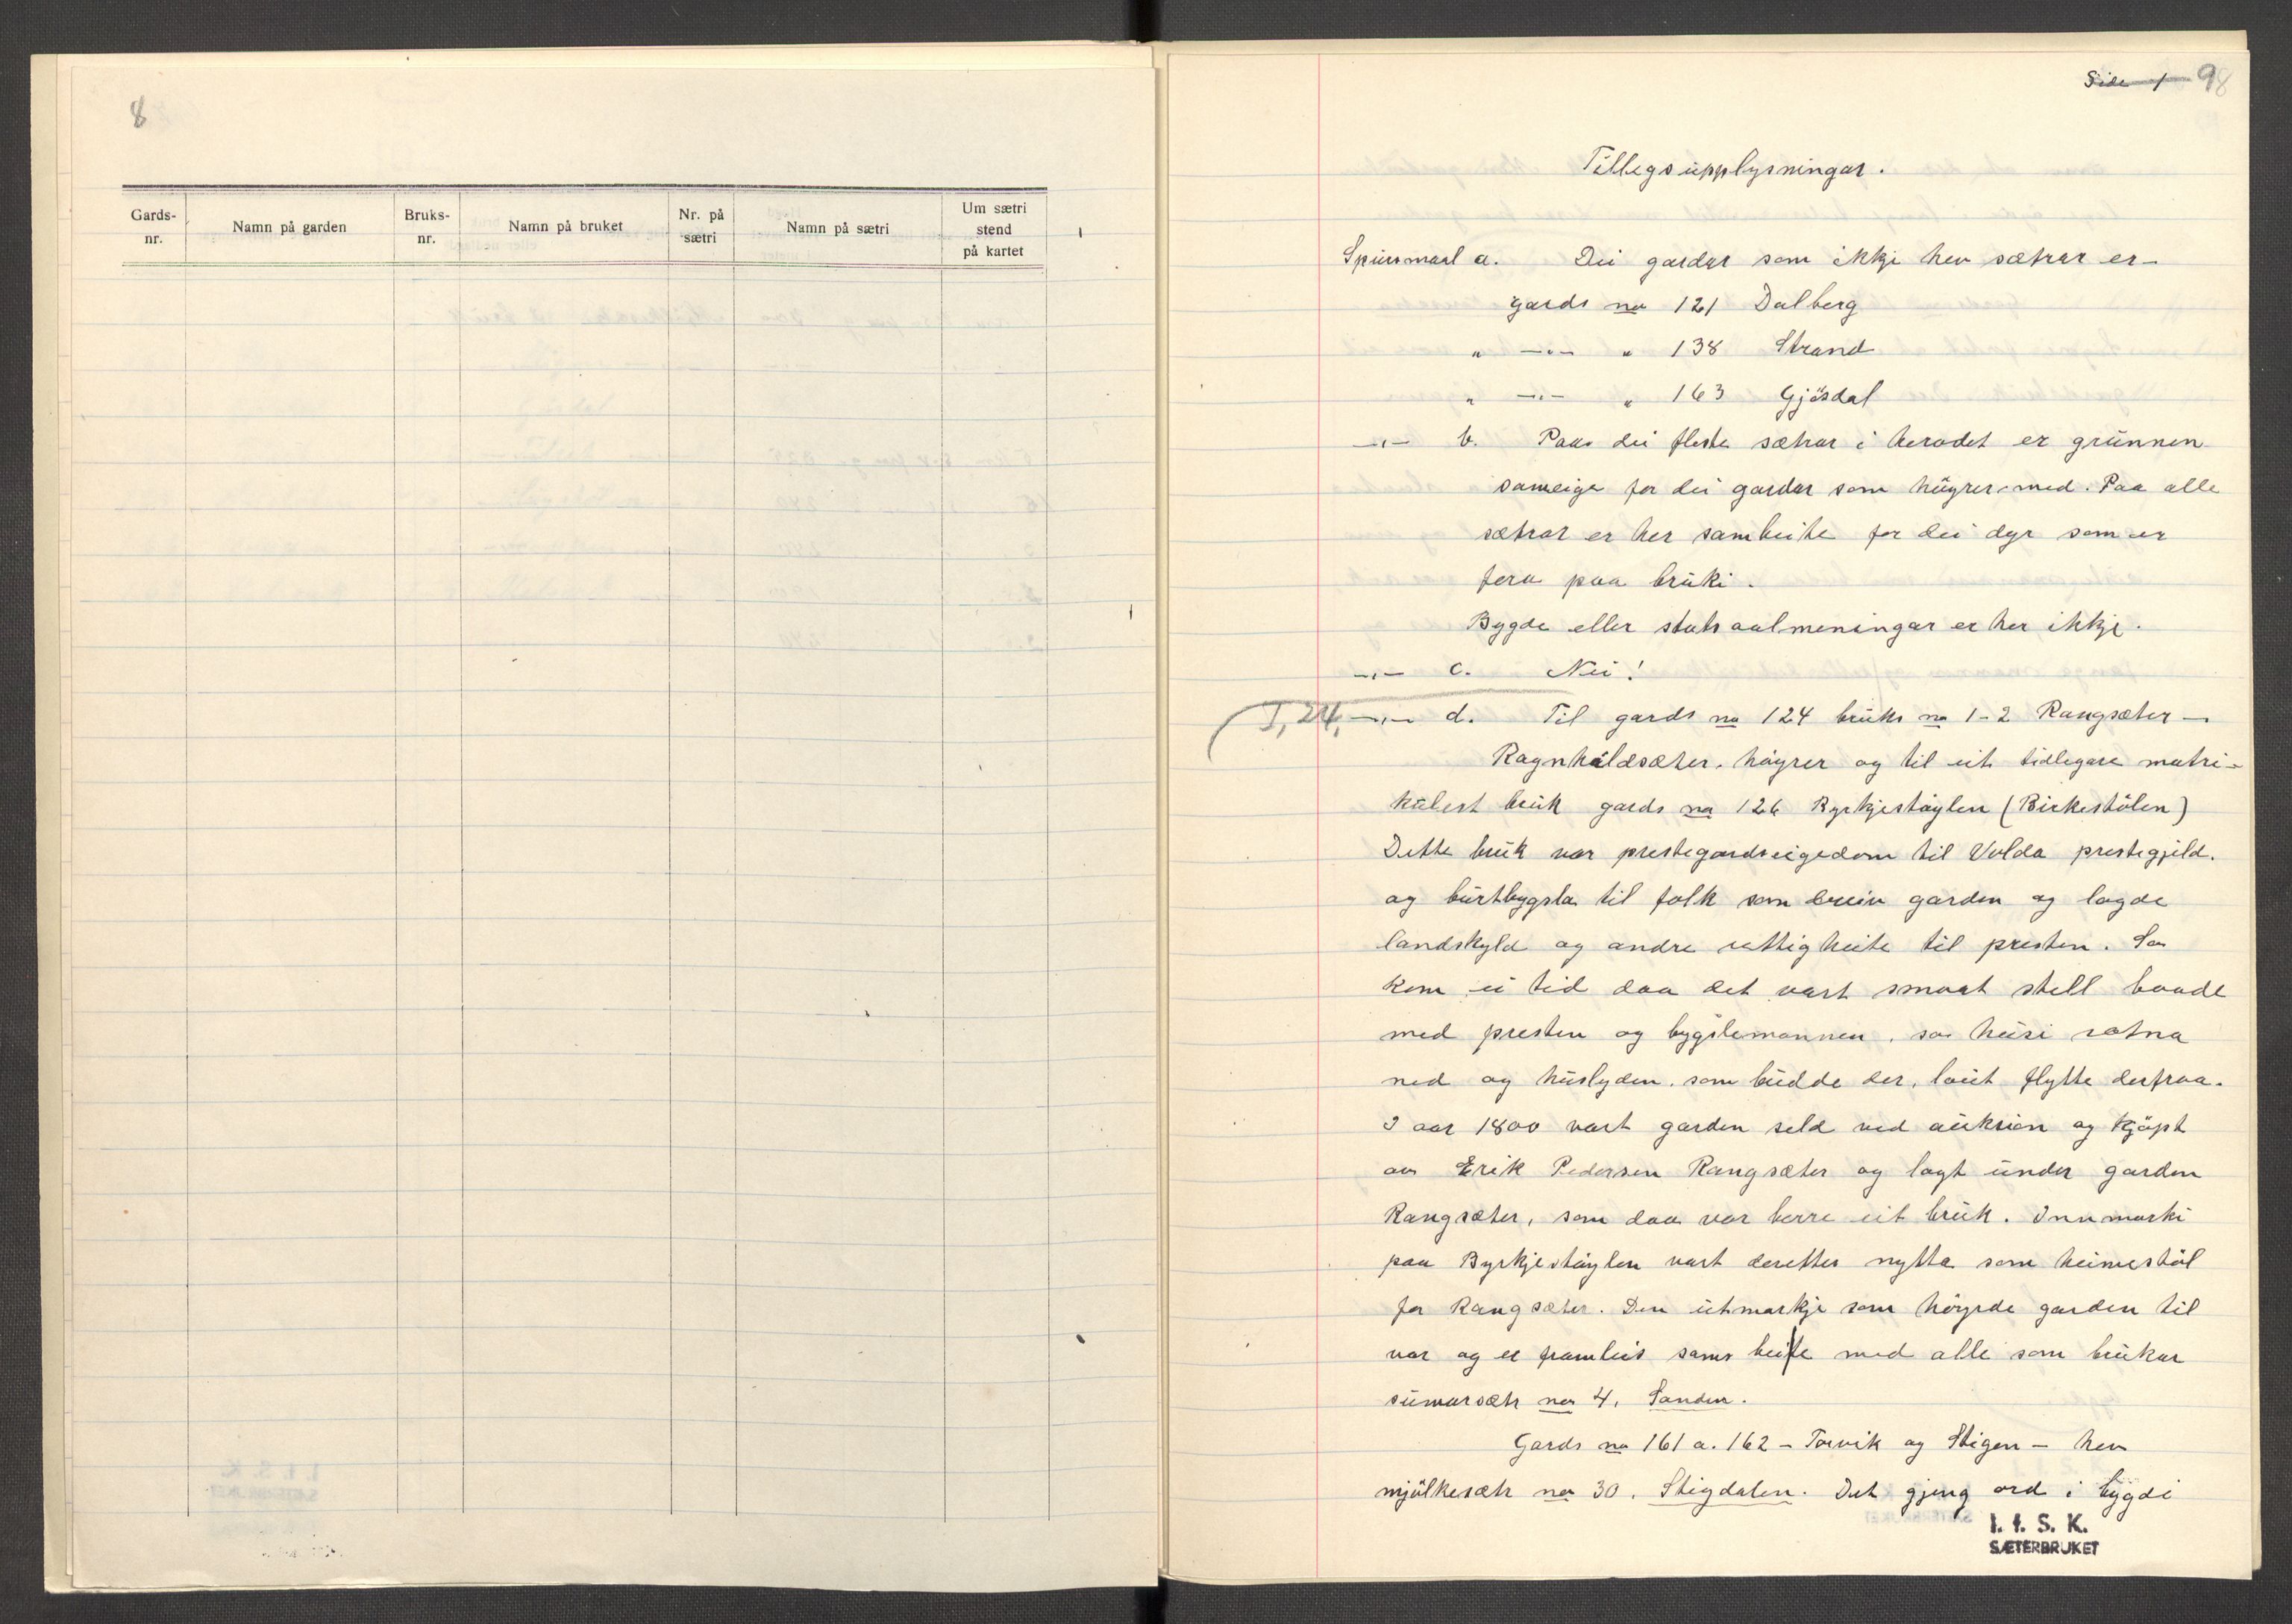 8
Gards-
nr.
Namn på garden
Bruks-
nr.
Namn på bruket
Nr. på
sætri
Namn på sætri
Um sætri
stend
på kartet
Side 1 98
Tillegsupplysningar.
Spursmaal a. Dei gardar som ikkje hev sætrar er -
gards no 121 Dalberg
" -"- " 138 Strand
" -"- " 163 Gjösdal
-"- b. Paa dei fleste sætrar i heradet er grunnen
sameige for dei gardar som høyrer med. Paa alle
sætrar er her sambeite for dei dyr som er
fera paa bruki.
Bygde eller statsaalmeningar er her ikkje.
-"- c. Nei!
I, 24, -"- d. Til gards no 124 bruks no 1-2 Rangsæter -
Ragnhildsæter, høyrer og til eit tidlegare matri-
kulert bruk gards no 126 Byrkjestøylen (Birkestölen)
Dette bruk var prestegardseigedom til Volda prestegjeld.
og burtbygsla til folk som dreiv garden og lagde
landskyld og andre rettigheite til presten. So
kom ei tid daa det vart smaat stell baade
med presten og bygslemannen, so husi rotna
ned og huslyden, som budde der, laut flytte derfraa.
I aar 1800 vart garden seld ved auksion og kjöpt
av Erik Pedersen Rangsæter og lagt under garden
Rangsæter, som daa var berre eit bruk. Innmarki
paa Byrkjestøylen vart deretter nytta som heimestöl
for Rangsæter. Den utmarkje som høyrde garden til
var og er framleis sams beite med alle som brukar
sumarsætr no 4, Sanden.
Gards no 161 a. 162 - Torvik og Stigen - hev
mjölkesætr no 30, Stigdalen. Det gjeng ord i bygdi
I. f. S. K.
SÆTERBRUKET